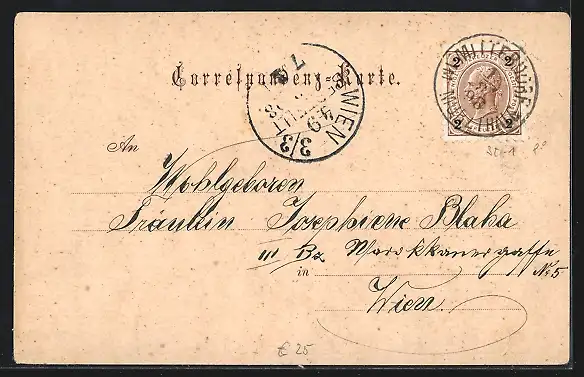 Correspondenz-Karte.
WIEN 3/3
49
2 2
2 2
An
Wohlgeboren
Fräulein Josephiene Blaha
III Bz Marokkanergasse
in No. 5
Wien
£ 25